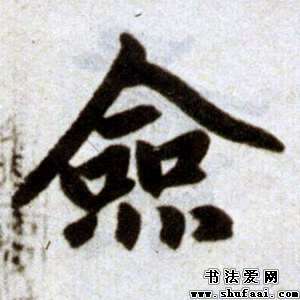 僉
书法爱网
www.shufaai.com